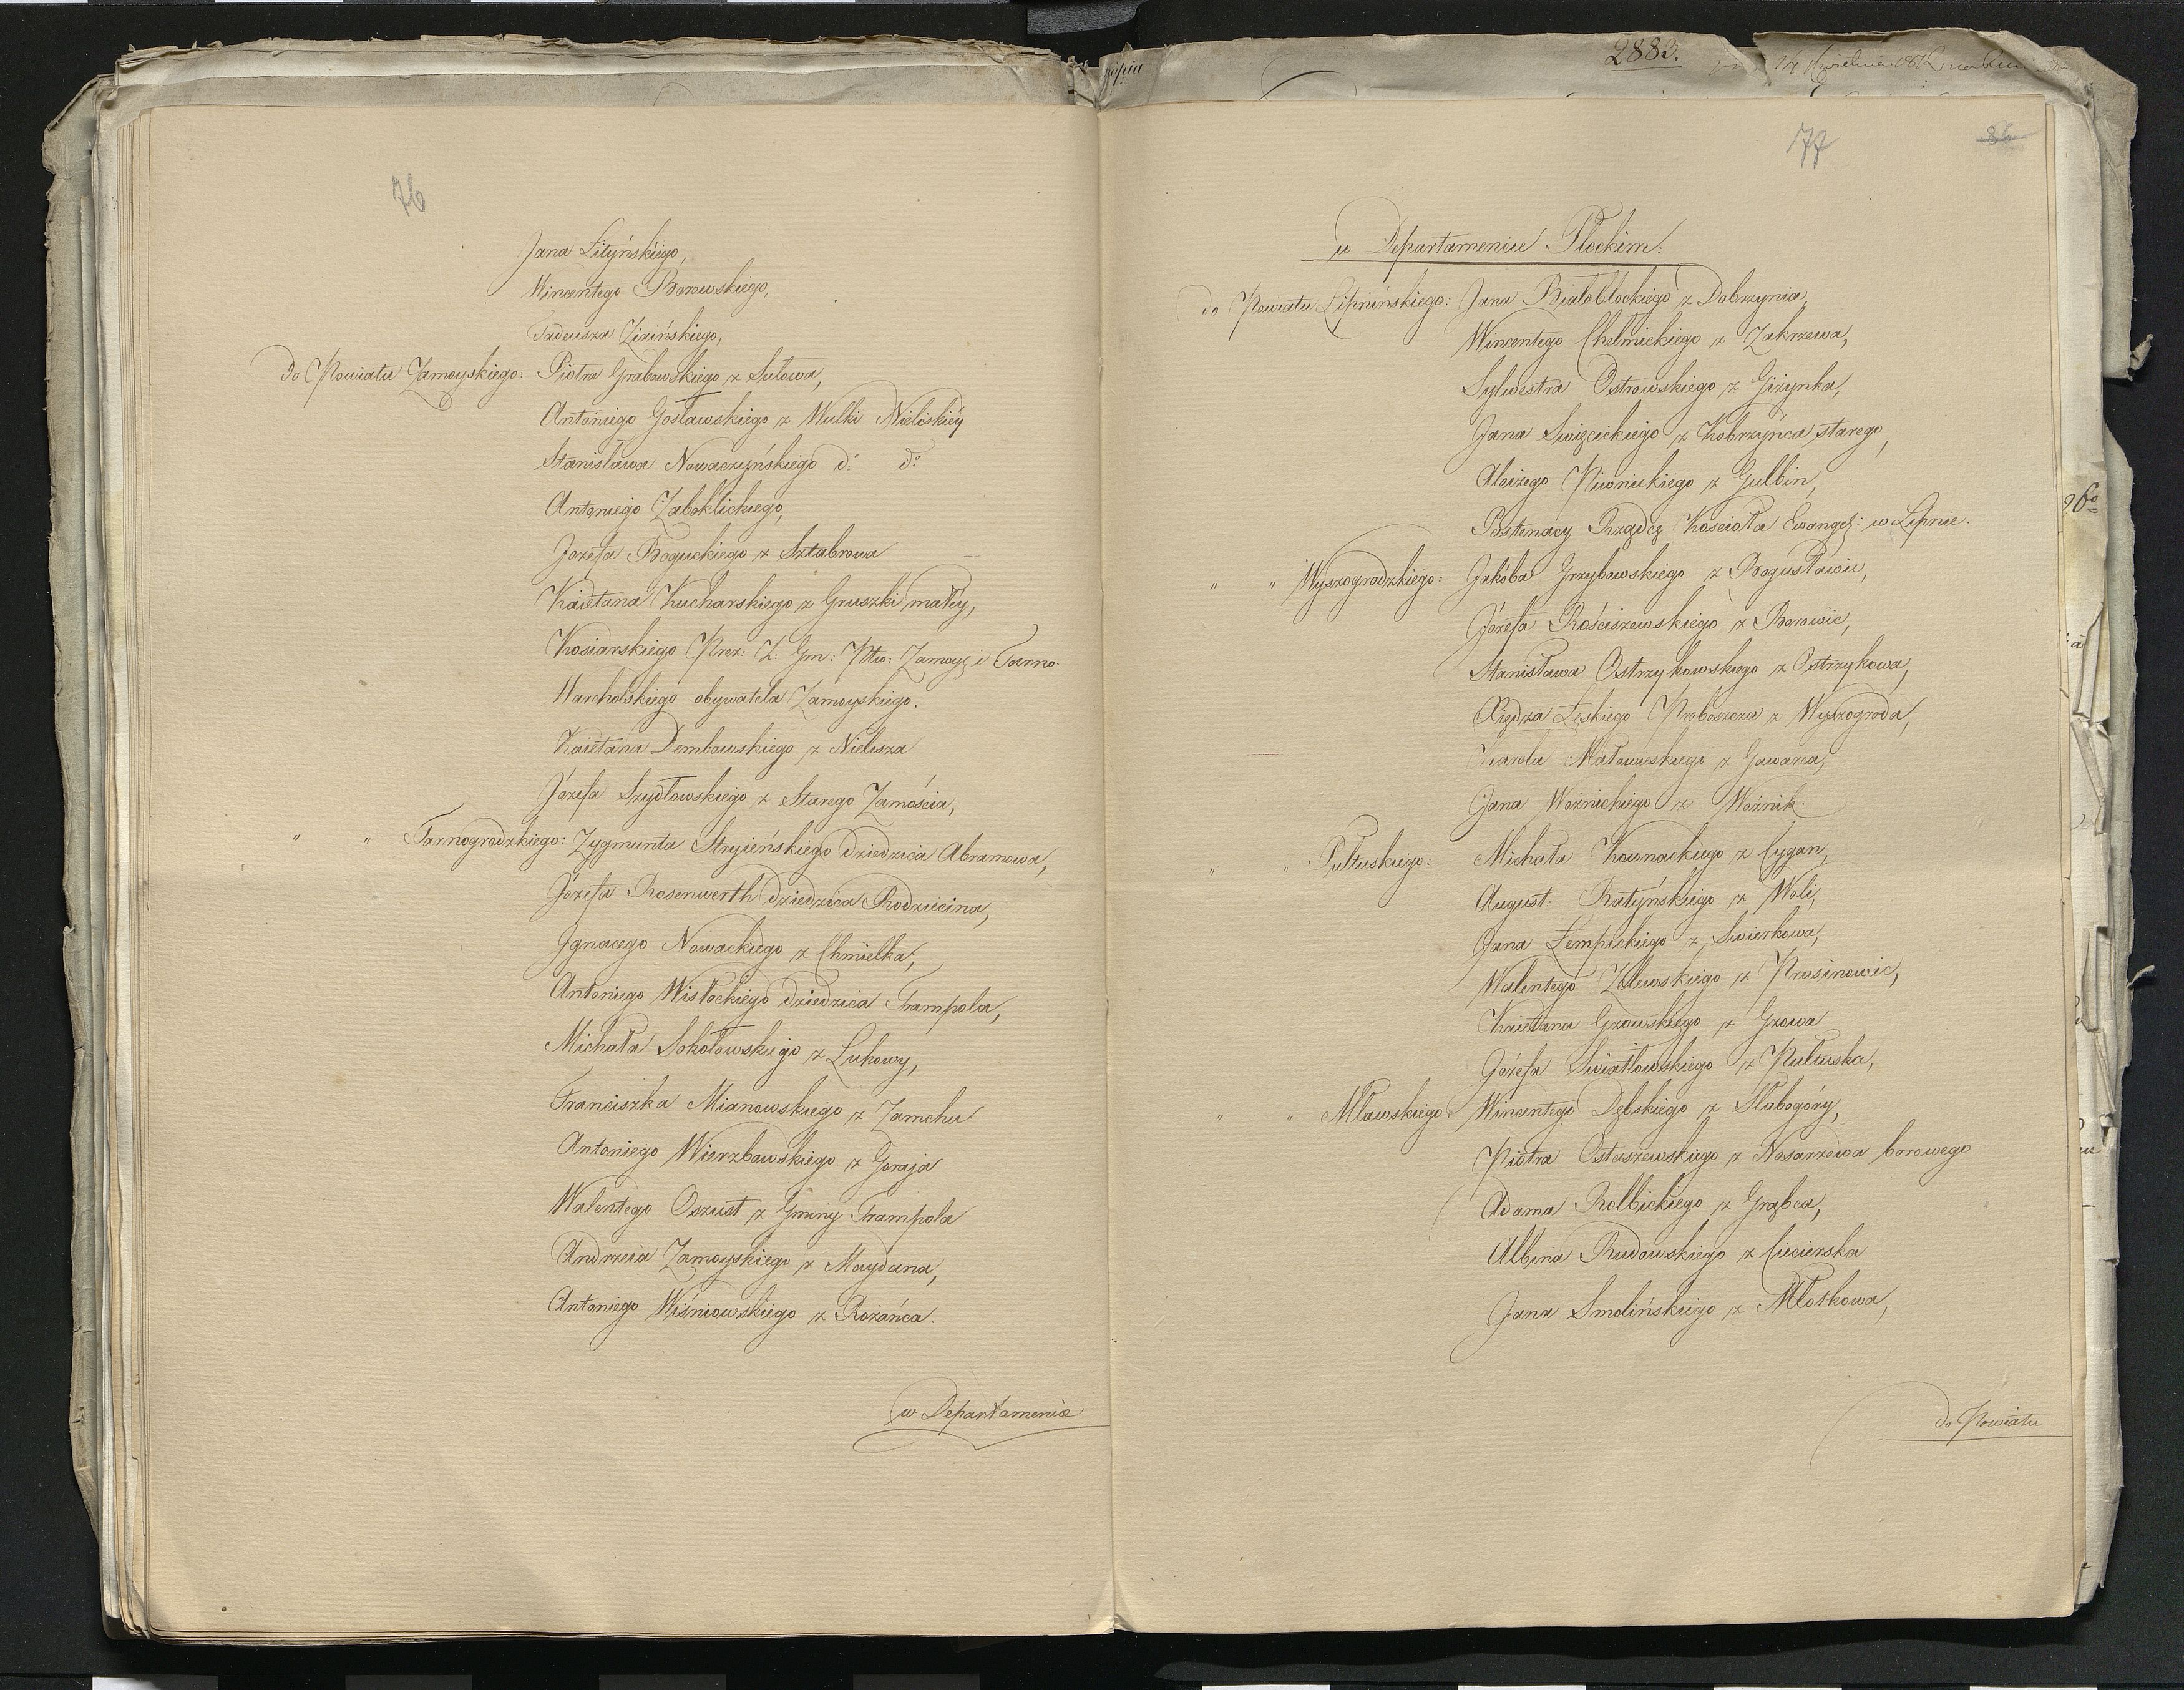 76
Jana Lityńskiego,
Wincentego Borowskiego,
Tadeusza Ziaińskiego,
Do Powiatu Zamoyskiego: Piotra Grabowskiego z Sułowa,
Antoniego Gosławskiego z Wulki Nieliskiéy
Stanisława Nowaczyńskiego do: do:
Antoniego Zaboklickiego,
Jozefa Boguckiego z Sztabrowa
Kaietana Kucharskiego z Gruszki małéy,
Kosiarskiego Prez: Z: Gm: Ptw: Zamoys i Tarno:
Warcholskiego obywatela Zamoyskiego.
Kaietana Dembowskiego z Nielisza
Józefa Szydłowskiego z Starego Zamościa,
" " Tarnogrodzkiego: Zygmunta Stryieńskiego dziedzica Abramowa,
Józefa Rosenwerth dziedzica Rodziecina,
Ignacego Nowackiego z Chmielka,
Antoniego Wisłockiego dziedzica Frampola,
Michała Sokołowskiego z Lukowy,
Franciszka Mianowskiego z Zamchu
Antoniego Wierzbowskiego z Goraja
Walentego Oszust z Gminy Frampola
Andrzeia Zamoyskiego z Maydana,
Antoniego Wiśniowskiego z Rożańca.
w Departamencie
2883.
77
86
w Departamencie Płockim:
do Powiatu Lipnińskiego: Jana Białobłockiego z Dobrzynia,
Wincentego Chełmickiego z Zakrzewa,
Sylwestra Ostrowskiego z Giżynka,
Jana Swięcickiego z Kobrzyńca starego,
Aloizego Piwnickiego z Gulbin,
Pastenacy Rządcę Kościoła Ewangel: w Lipnie.
" " Wyszogrodzkiego: Jakóba Grzybowskiego z Bogusławic,
Józefa Rościszewskiego z Borowic,
Stanisława Ostrzykowskiego z Ostrzykowa,
Xiędza Łęskiego Proboszcza z Wyszogroda,
Karola Matowskiego z Gawarca,
Jana Woźnickiego z Woźnik.
" " Pułtuskiego: Michała Kownackiego z Cygan,
August: Ratyńskiego z Woli,
Jana Łempickiego z Swierkowa,
Walentego Zalewskiego z Prusinowic,
Kaietana Gzowskiego z Gzowa
Józefa Swiatłowskiego z Pułtuska,
" " Mławskiego: Wincentego Dębskiego z Słabogóry,
Piotra Ostaszewskiego z Nosarzewa borowego
Adama Rolbickiego z Grąbca,
Albina Rudowskiego z Ciecierska
Jana Smolińskiego z Młotkowa,
do Powiatu